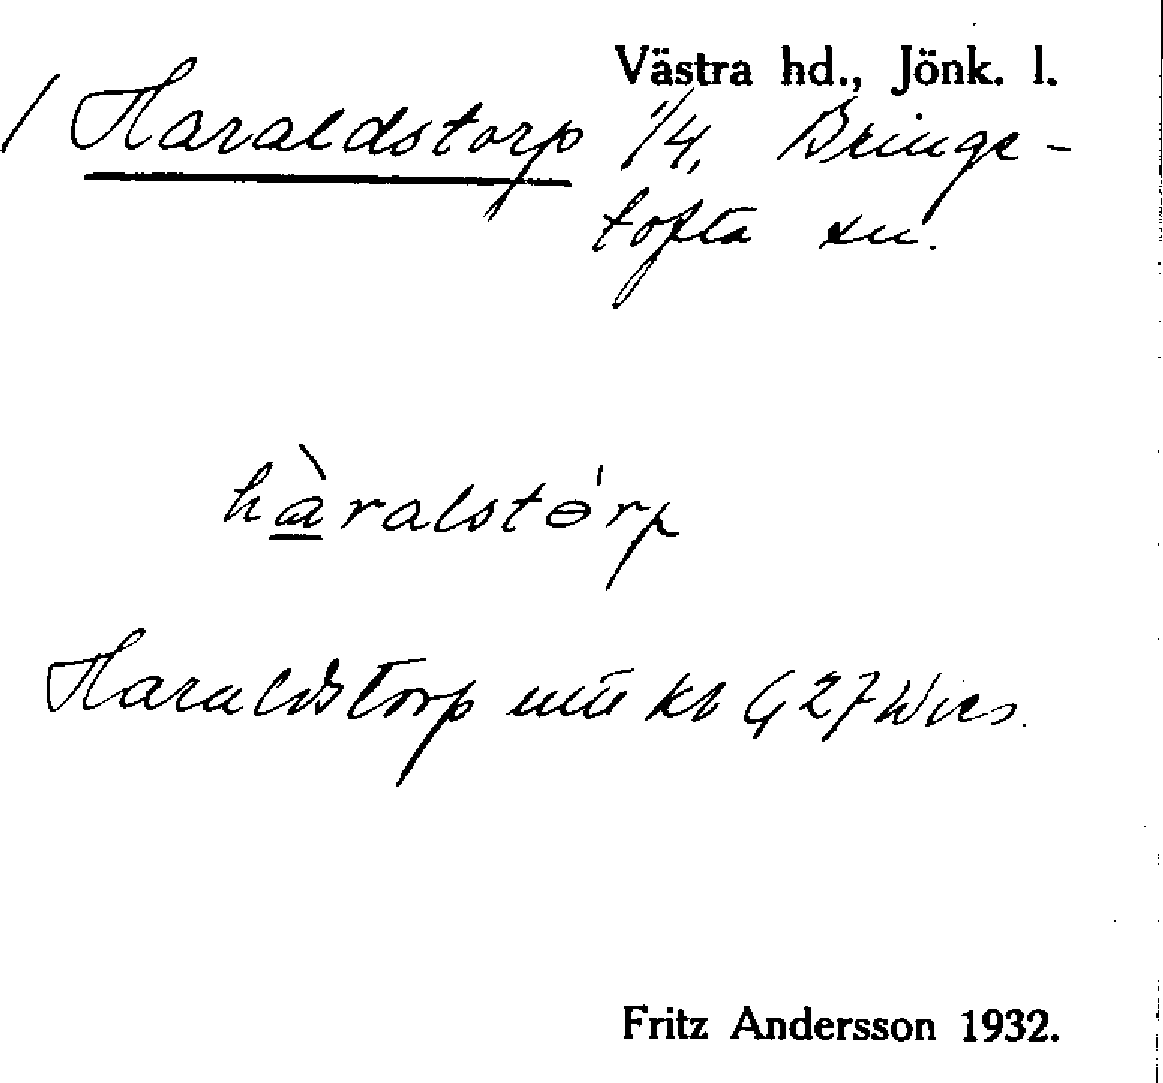 Västra hd., Jönk. l.
/ Haraldstorp 1/4, Bringe-
tofta sn.
hàralstɵ́rp
Haraldstorp kb G 27
Fritz Andersson 1932.